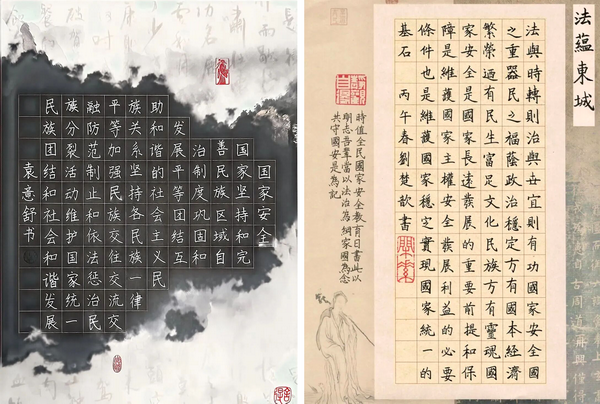 国家安全
国家坚持和完
善民族区域自
治制度巩固和
发展平等团结互
助和谐的社会主义民
族关系坚持各民族一律
平等加强民族交往交流交
融防范制止和依法惩治民
族分裂活动维护国家统一
民族团结和社会和谐发展
袁意舒书
法蘊東城
法與時轉則治與世宜則有功國家安全國
之重器民之福蔭政治穩定方有國本經濟
繁榮迺有民生富足文化民族方有靈魂國
家安全是國家長遠發展的重要前提和保
障是維護國家主權安全發展利益的必要
條件也是維護國家穩定實現國家統一的
基石 丙午春劉楚歆書
時值全民國家安全教育日書此以
明志吾輩當以法治為綱家國為念
共守國安是為記